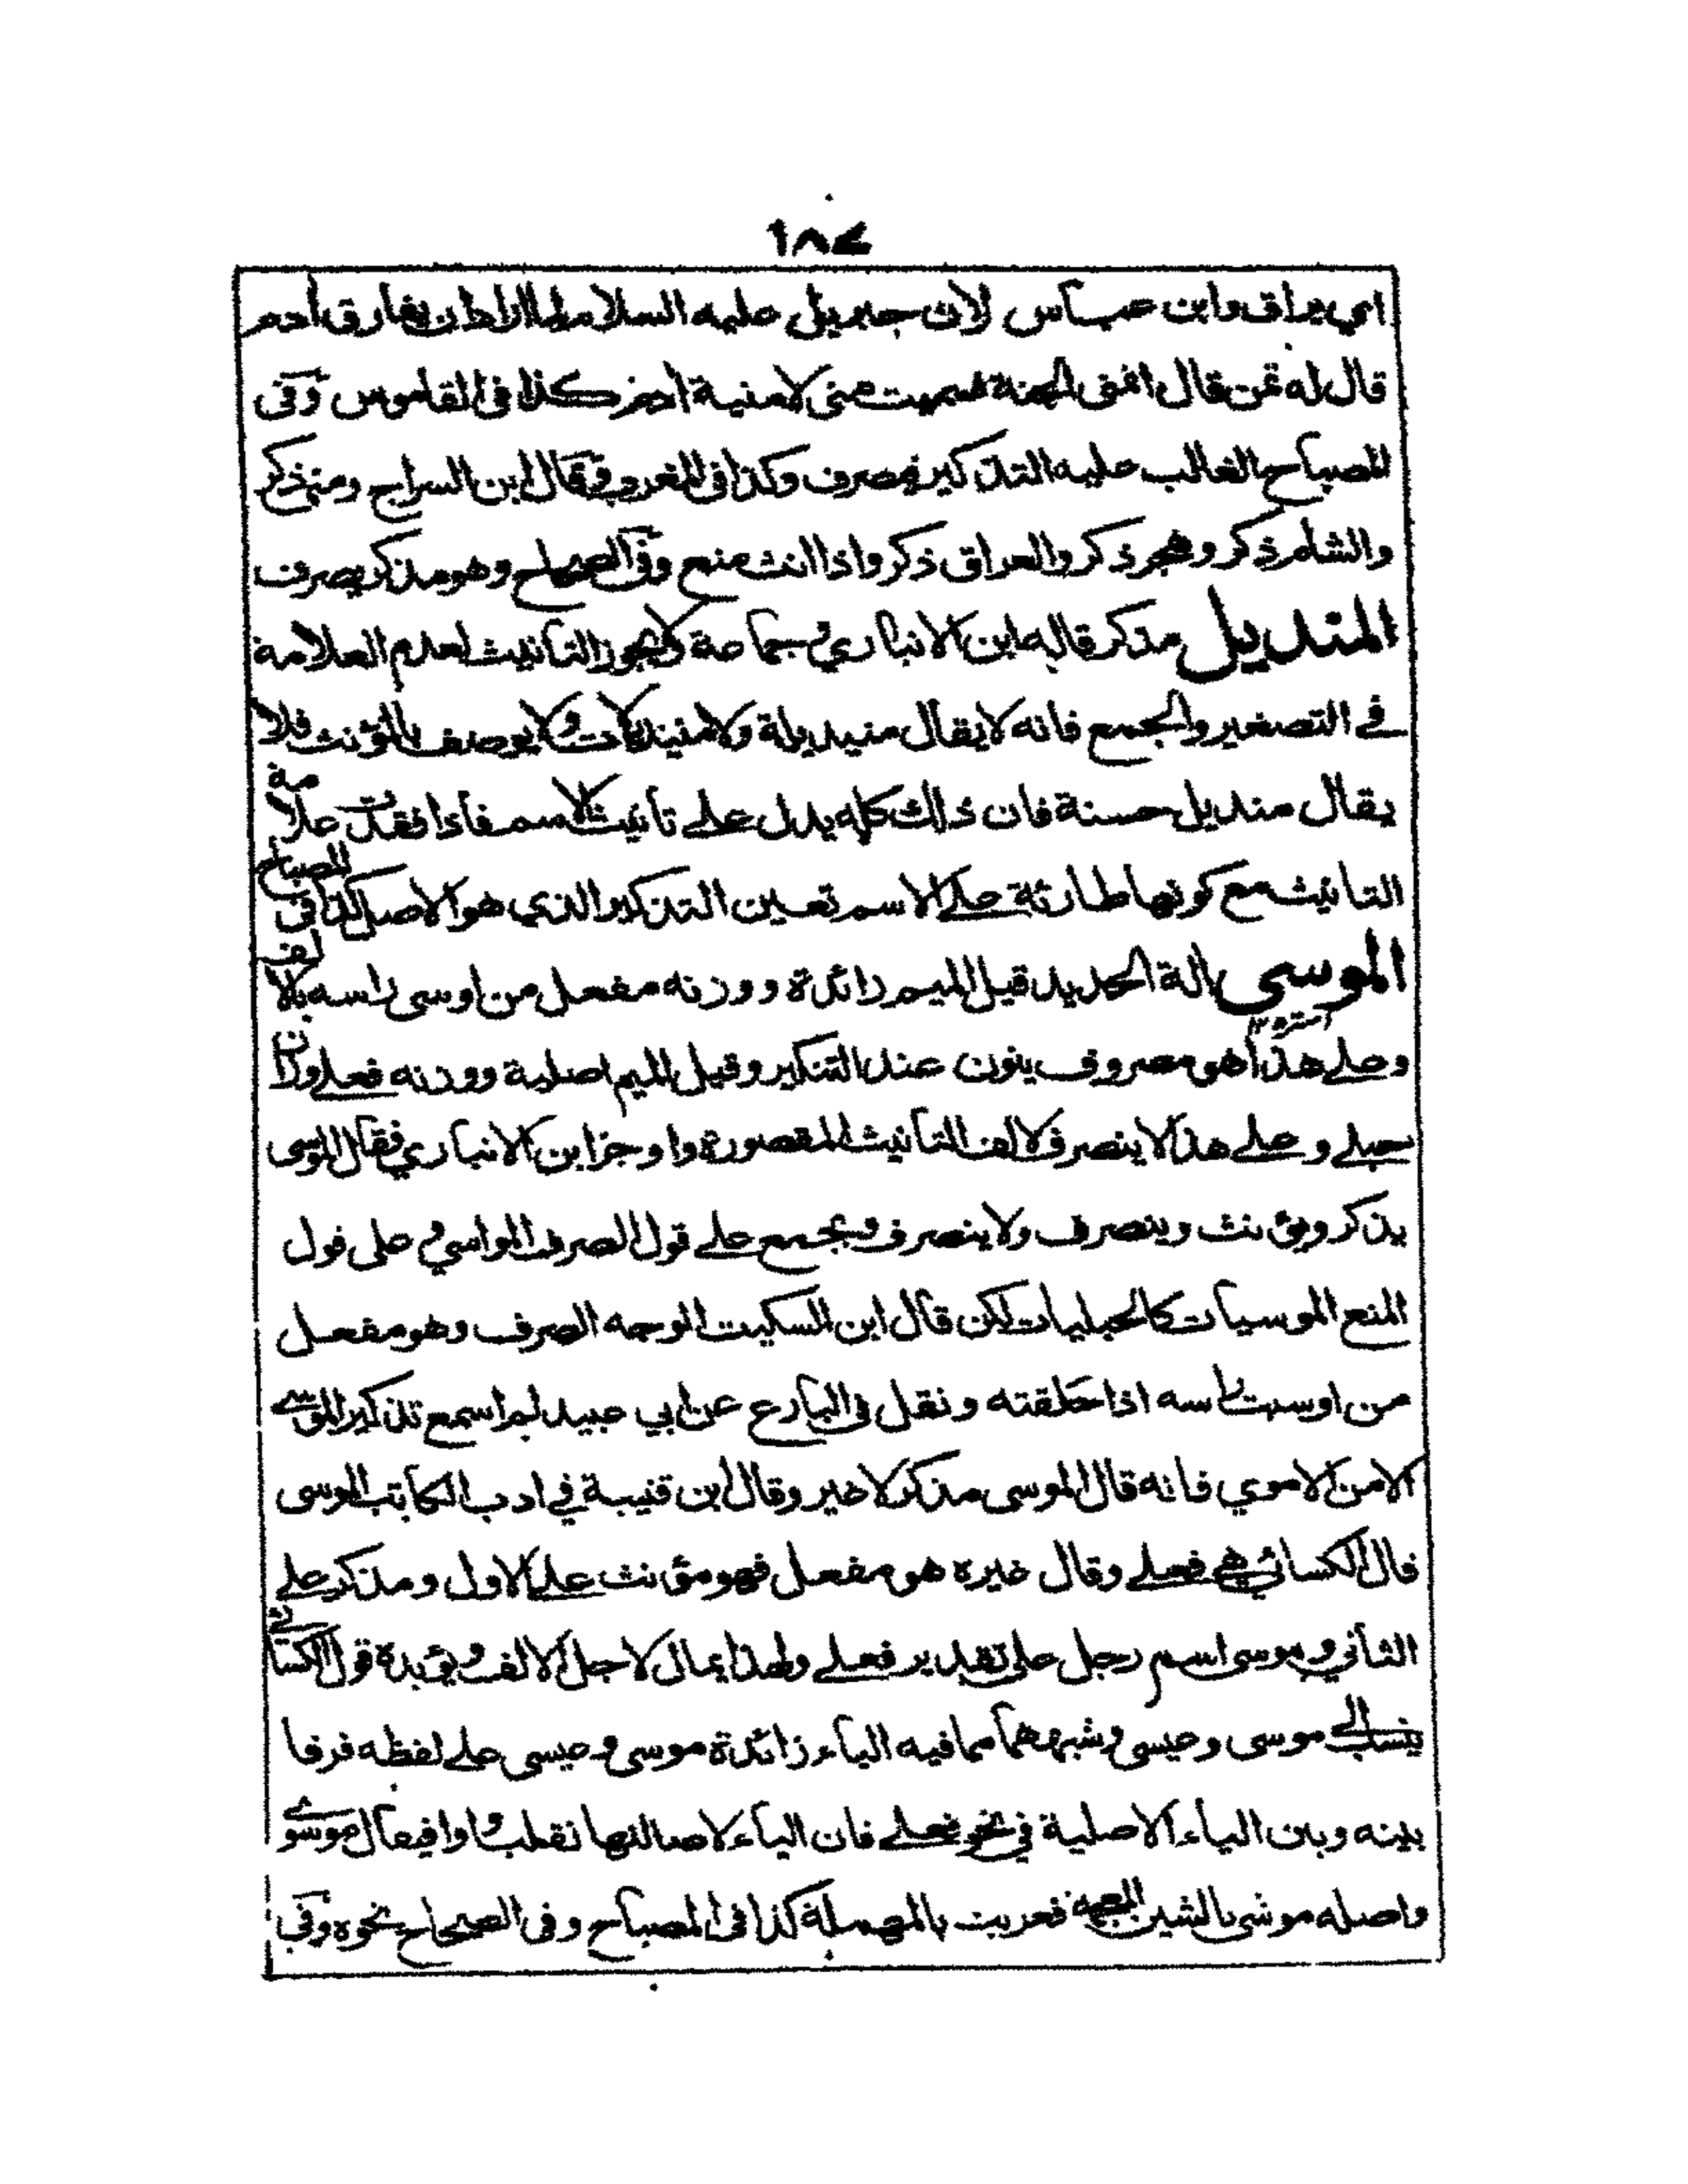 ١٨٧
اي يراق وابن عباس لان جبريل عليه السلام لما اراد ان يفارق ادم
قال له تمن قال اتمنى الجنة فسميت منى لامنية ادم كذا فى القاموس وفى
المصباح الغالب عليه التذكير فيصرف وكذا فى المغرب وقال ابن السراج ومنى ذكر
والشام ذكر وهجر ذكر والعراق ذكر واذا انث منع وفى الصحاح وهو مذكر يصرف
المنديل مذكر قاله ابن الانباري وجماعة ولا يجوز التانيث لعدم العلامة
في التصغير والجمع فانه لا يقال منيديلة ولا منيديلات ولا يوصف بالمؤنث فلا
يقال منديل حسنة فان ذلك كله يدل على تانيث الاسم فاذا فقدت علامة
التانيث مع كونها طارئة على الاسم تعين التذكير الذي هو الاصل كذا فى المصباح
الموسى الة الحديد قيل الميم زائدة ووزنه مفعل من اوسى راسه بالالف
استره ١٢
وعلى هذا هو مصروف ينون عند التنكير وقيل الميم اصلية ووزنه فعلى وزان
حبلى وعلى هذا لا ينصرف لالف التانيث المقصورة واوجز ابن الانباري فقال الموسى
يذكر ويؤنث وينصرف ولا ينصرف ويجمع على قول الصرف المواسي وعلى قول
المنع الموسيات كالحبليات لكن قال ابن السكيت الوجه الصرف وهو مفعل
من اوسيت راسه اذا حلقته ونقل فى البارع عن ابي عبيد لم اسمع تذكير الموسى
الا من الاموي فانه قال الموسى مذكر لا غير وقال ابن قتيبة في ادب الكاتب الموسى
قال الكسائي هي فعلى وقال غيره هو مفعل فهو مؤنث على الاول ومذكر على
الثاني وموسى اسم رجل على تقدير فعلى ولهذا يمال لاجل الالف ويؤيده قول الكسائي
ينسب الى موسى وعيسى وشبههما مما فيه الياء زائدة موسى وعيسى على لفظه فرقا
بينه وبين الياء الاصلية في نحو فعلى فان الياء لاصالتها تقلب واوا فيقال موسوى
واصله موشى بالشين المعجمة فعربت بالمهملة كذا فى المصباح وفى الصحاح نحوه وفى